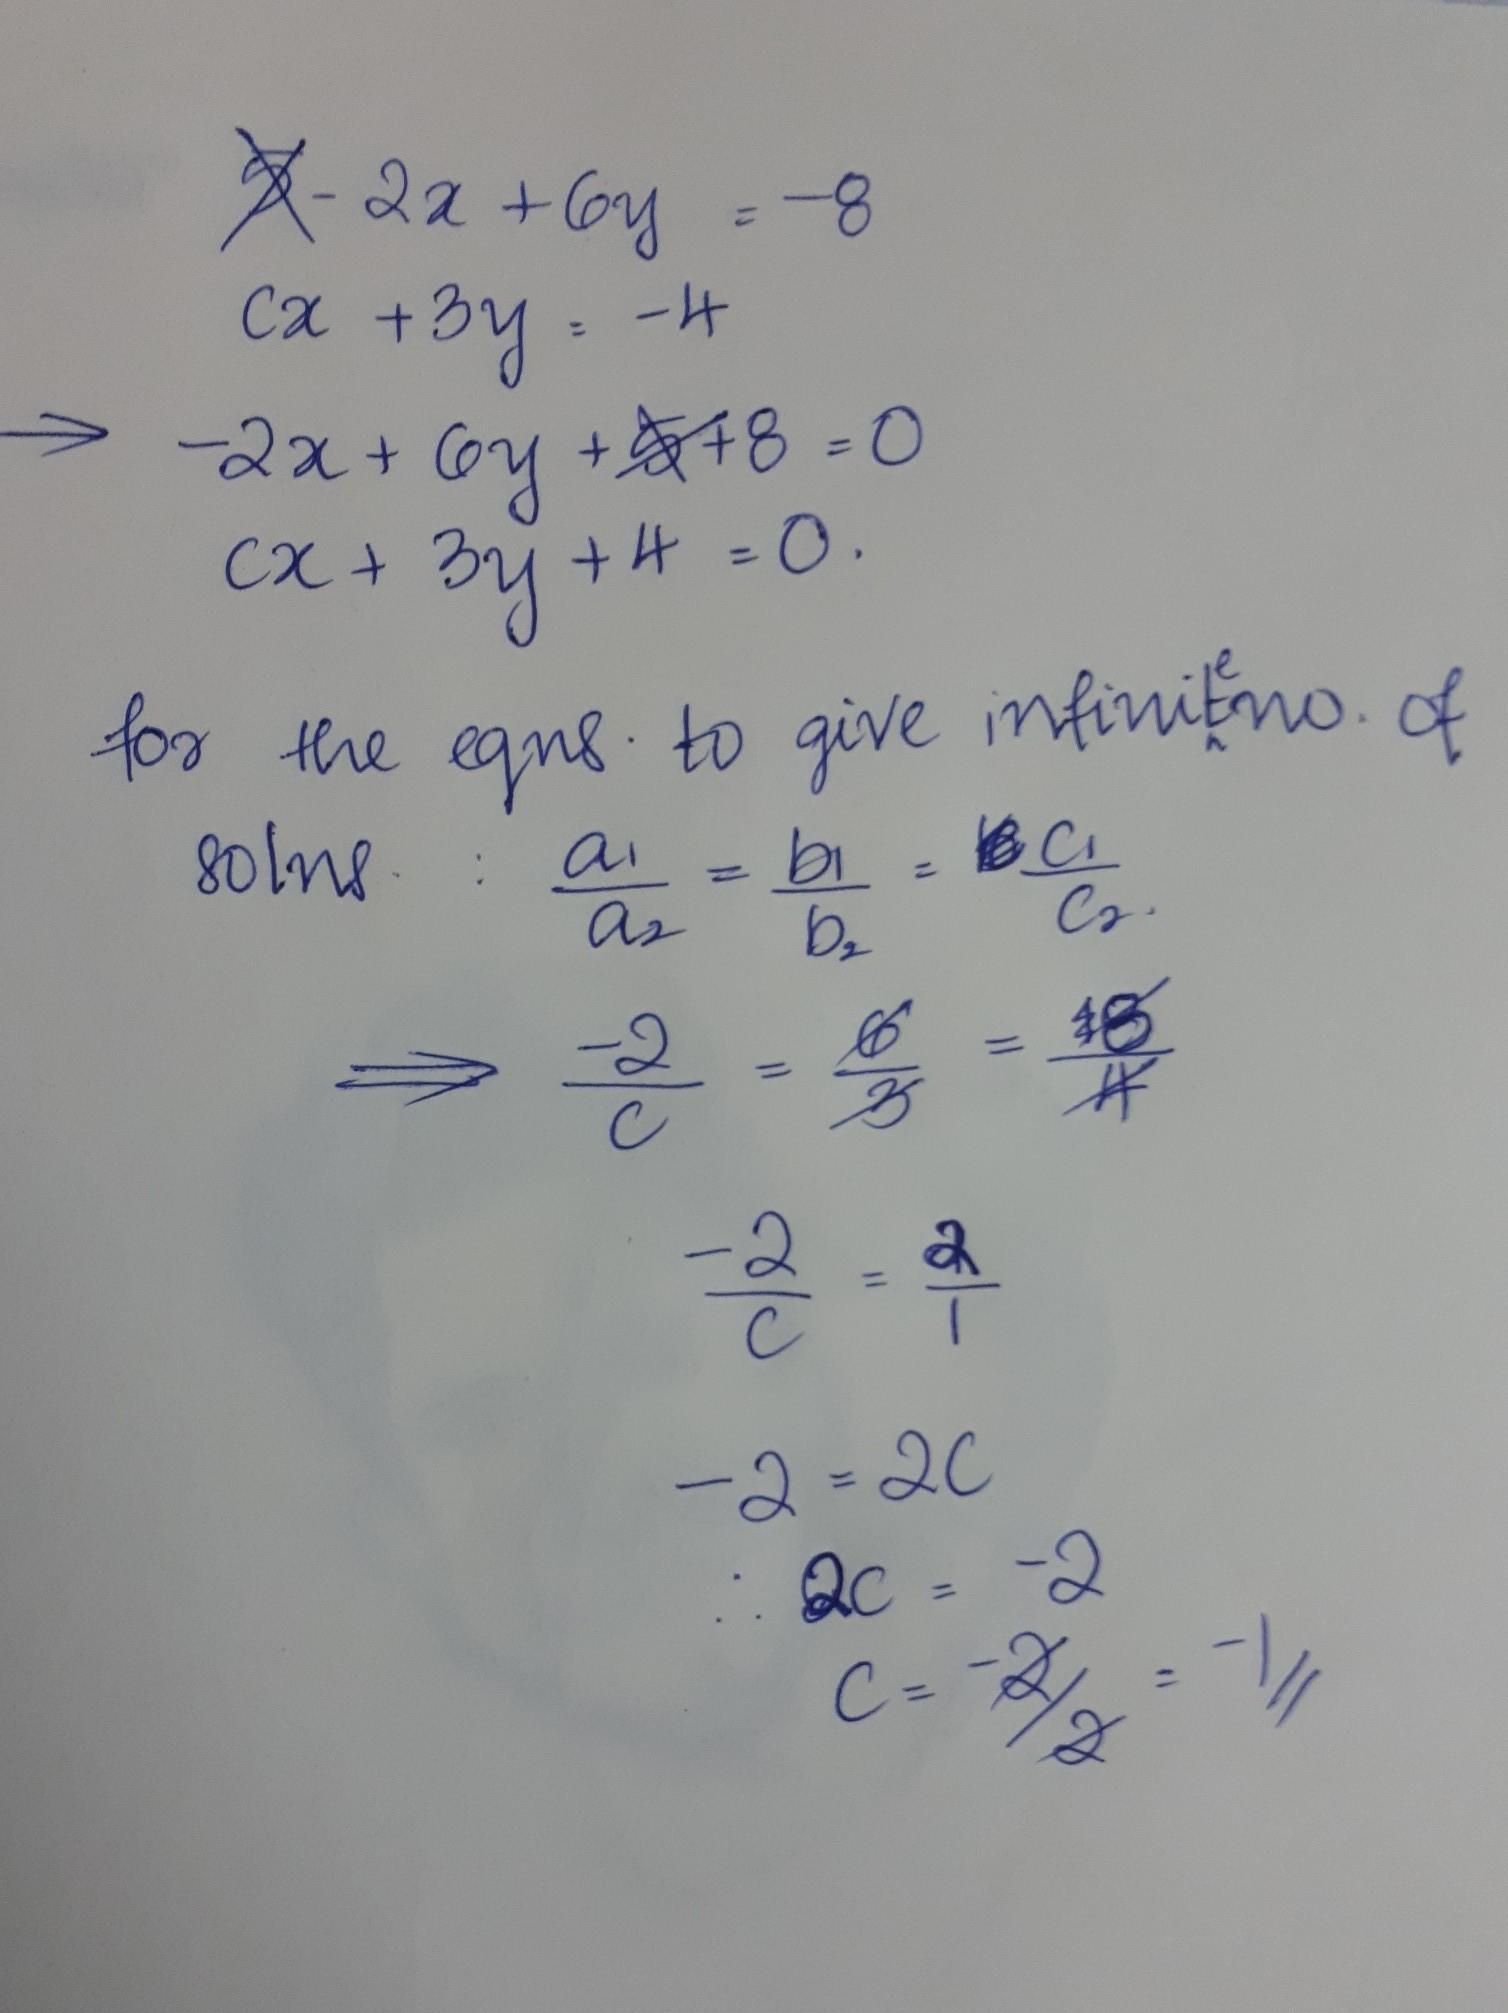 - 2x + 6y = -8
cx + 3y = -4
⇒ -2x + 6y + +8 = 0
cx + 3y + 4 = 0.
for the eqns. to give infinite no. of
solns. : a₁/a₂ = b₁/b₂ = c₁/c₂.
⇒ -2/c = 6/3 = 8/4
-2/c = 2/1
-2 = 2c
∴ 2c = -2
c = -2/2 = -1//